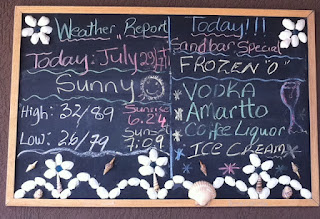 Weather Report
Today: July 29/17
Sunny
High: 32/89
Sunrise
6:24
Low: 26/79
Sunset
7:09
Today!!!
Sandbar Special
FROZEN "O"
VODKA
Amartto
Coffee Liquor
ICE CREAM